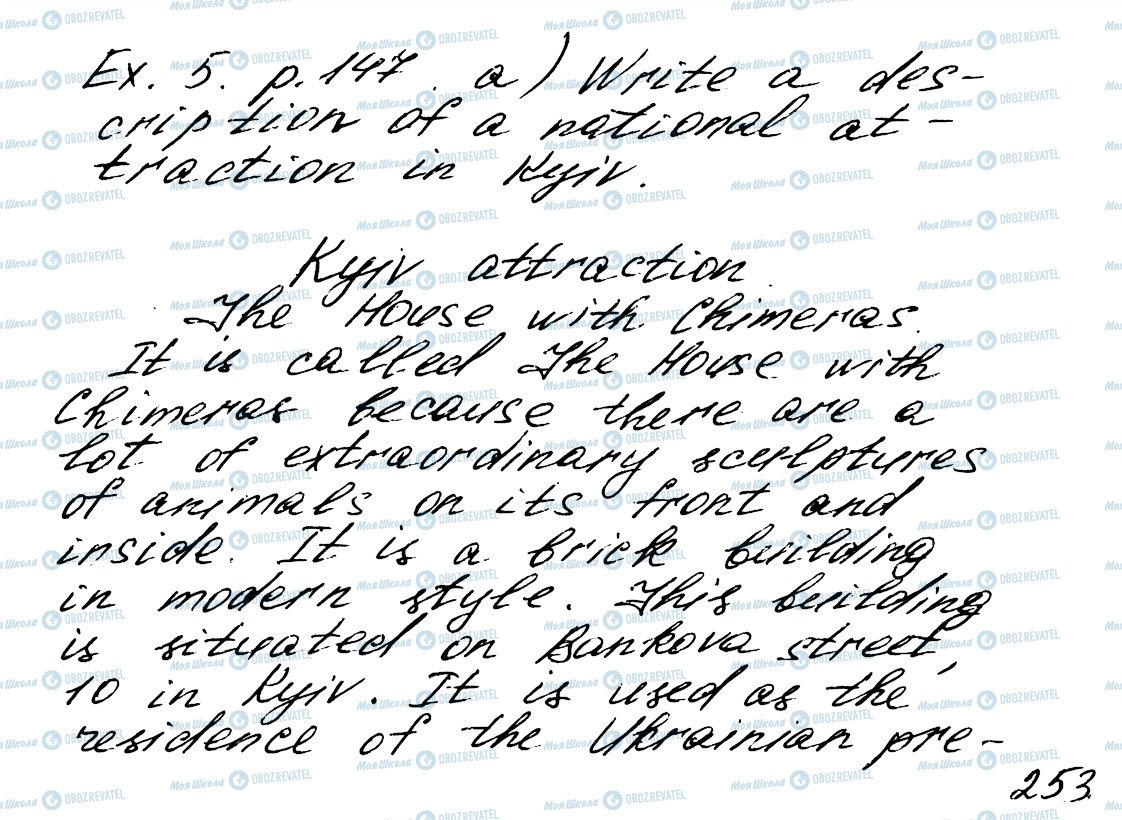 Ex. 5. p. 147. a) Write a des-
cription of a national at-
traction in Kyjiv.
Kyjiv attraction.
The House with Chimeras.
It is called The House with
Chimeras because there are a
lot of extraordinary sculptures
of animals on its front and
inside. It is a brick building
in modern style. This building
is situated on Bankova street,
10 in Kyjiv. It is used as the
residence of the Ukrainian pre-
253